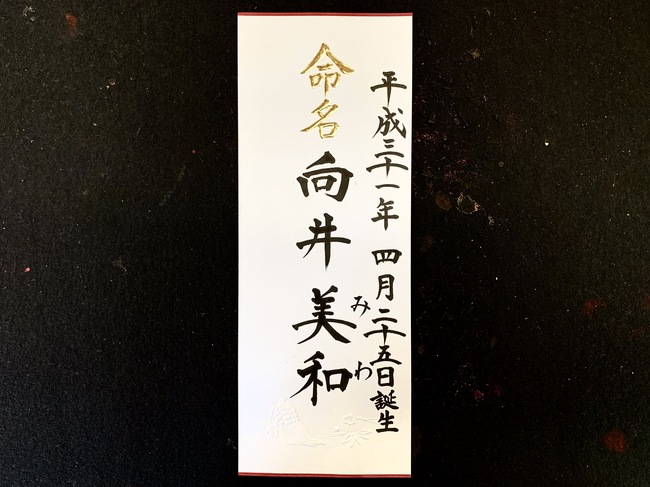 平成三十一年 四月二十五日誕生
命名 向井美和
みわ